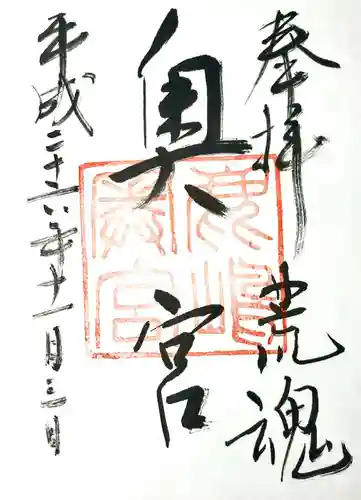 奉拝
荒魂
奥宮
鹿嶋
奥宮
平成二十六年十一月三日